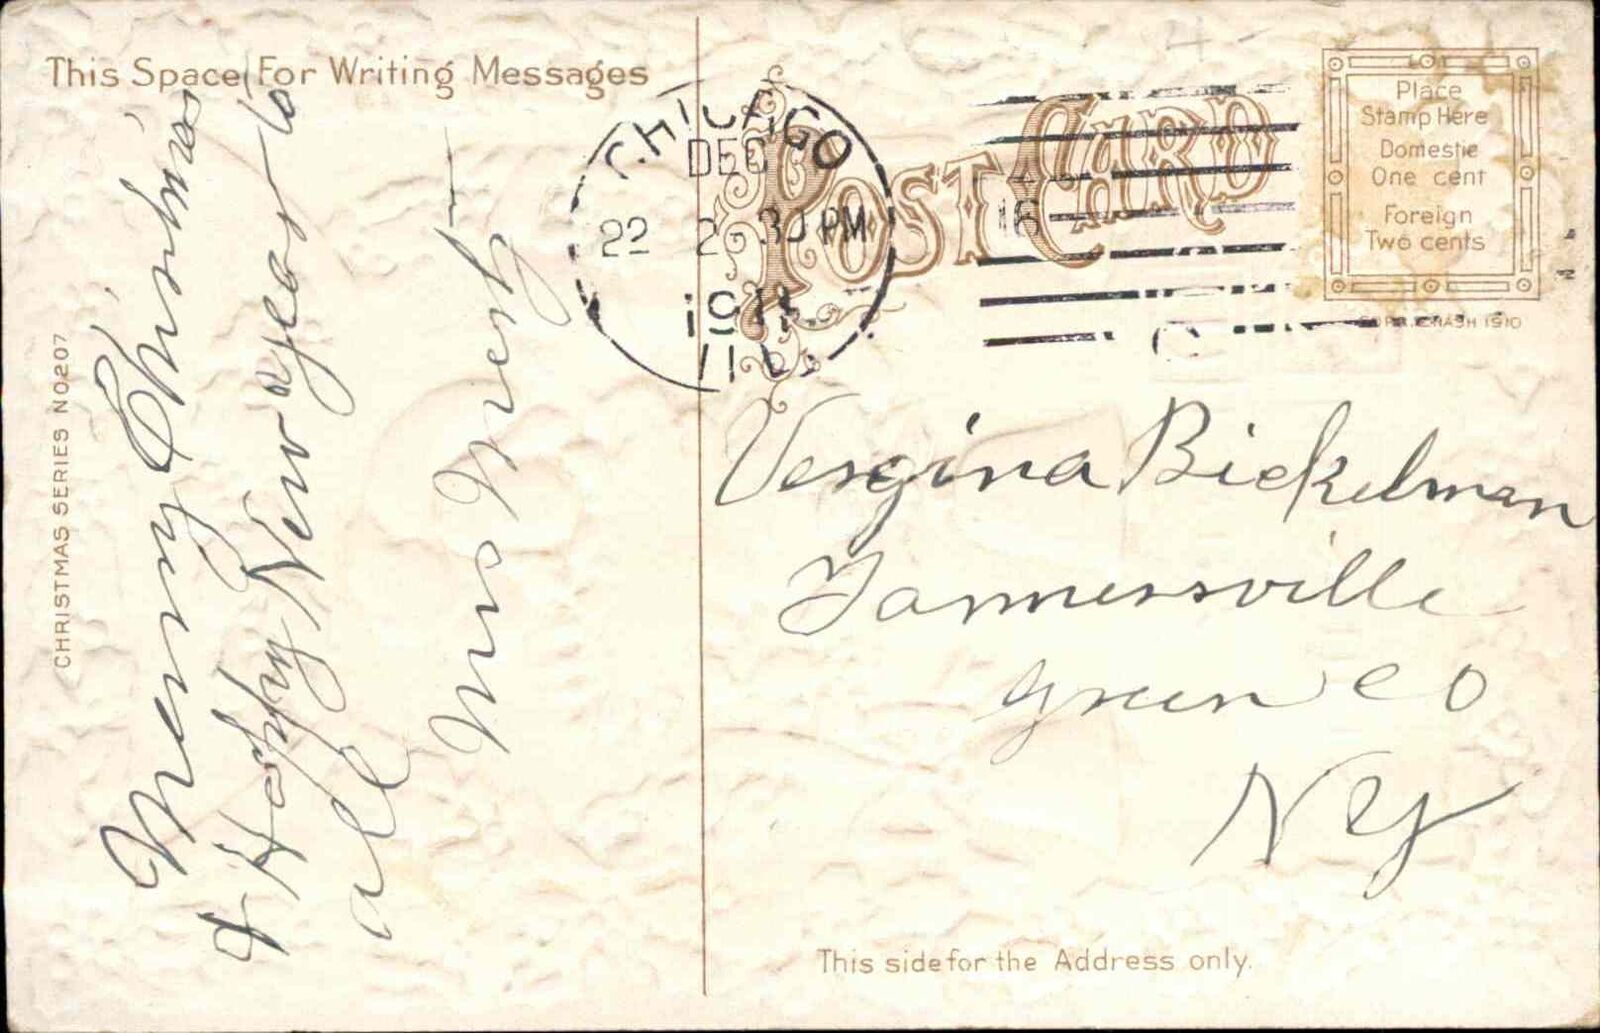 This Space For Writing Messages
CHRISTMAS SERIES NO207
Merry Christmas
& Happy New year to
all
Mrs West
POST CARD
CHICAGO
DEC
22 2 30 PM
191
ILL.
16
Place
Stamp Here
Domestic
One cent
Foreign
Two cents
COPR. E. NASH 1910
Vergina Bickelman
Tannersville
Green Co
NY
This side for the Address only.